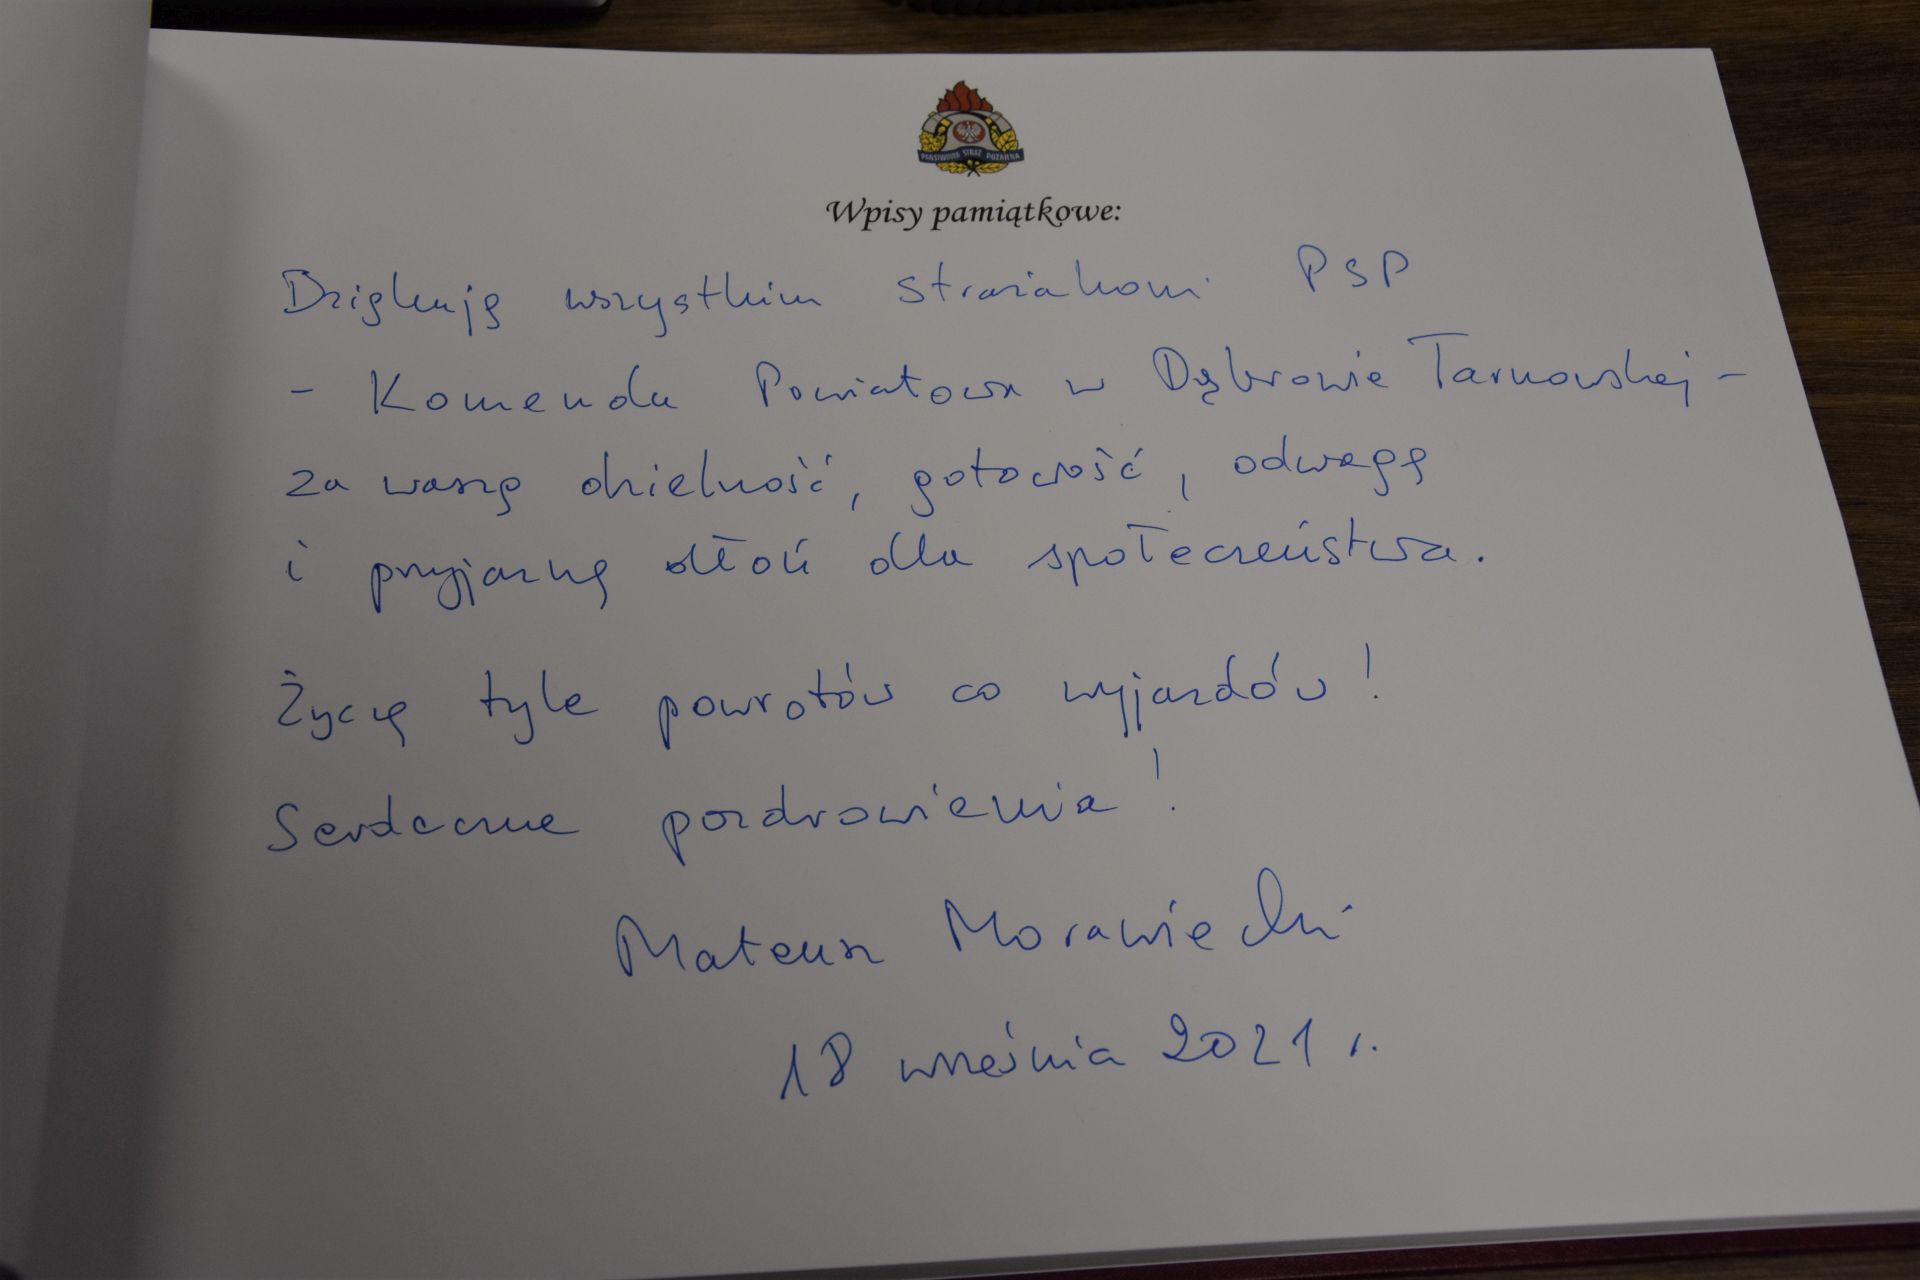 PAŃSTWOWA STRAŻ POŻARNA
Wpisy pamiątkowe:
Dziękuję wszystkim strażakom PSP
- Komenda Powiatowa w Dąbrowie Tarnowskiej -
za waszą dzielność, gotowość, odwagę
i przyjazną dłoń dla społeczeństwa.
Życzę tyle powrotów co wyjazdów!
Serdeczne pozdrowienia!
Mateusz Morawiecki
18 września 2021 r.